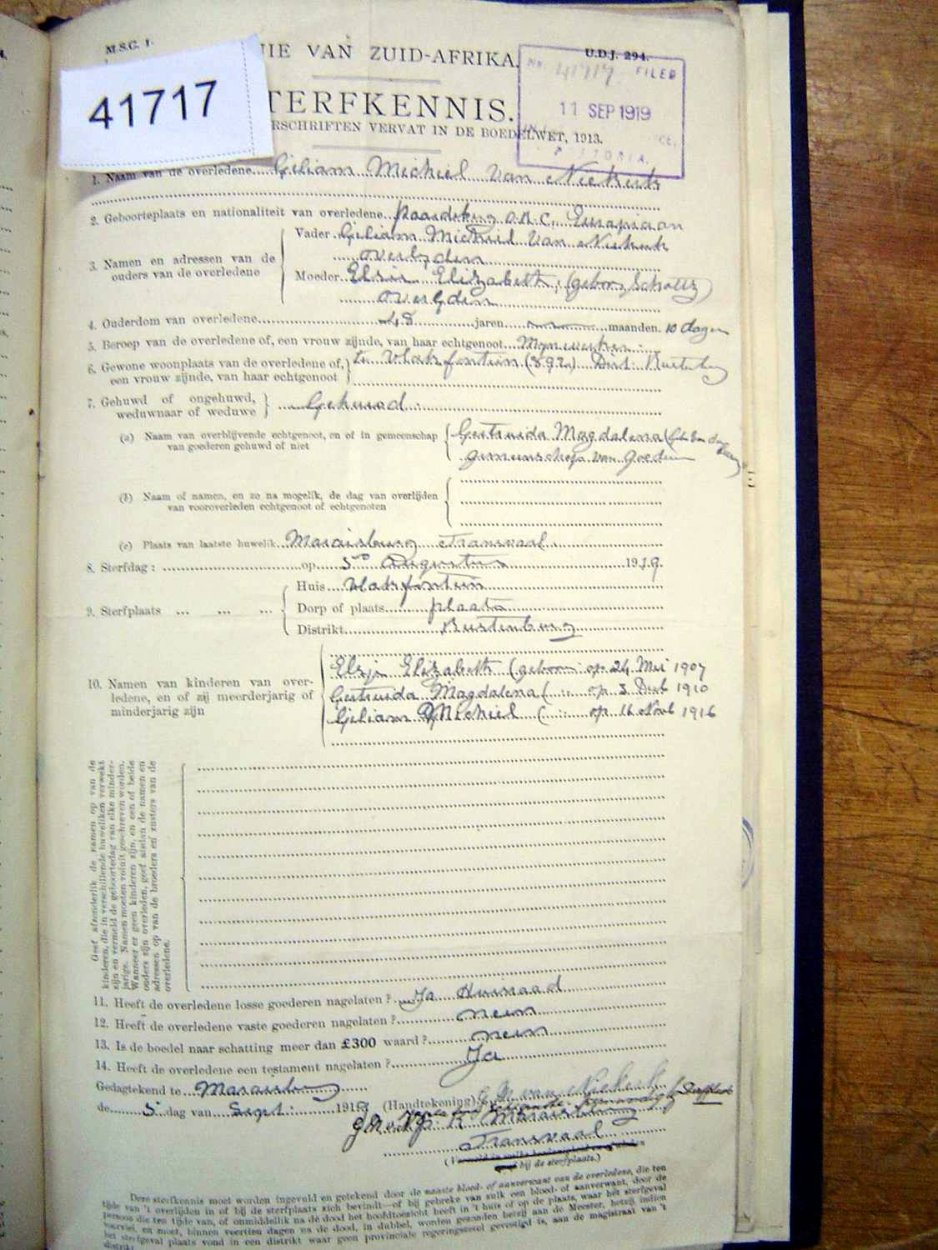 M.S.C. 1
U.D.J. 294.
IE VAN ZUID-AFRIKA.
41717
No. 41717 FILED
11 SEP 1919
TERFKENNIS.
RSCHRIFTEN VERVAT IN DE BOEDELWET, 1913.
1. Naam van de overledene Giliam Michiel Van Niekerk
2. Geboorteplaats en nationaliteit van overledene O.R.C. Europiaan
3. Namen en adressen van de ouders van de overledene
Vader Giliam Michiel Van Niekerk
overleden
Moeder Elsie Elizabeth (geboren Scholtz)
overleden
4. Ouderdom van overledene 48 jaren maanden. 10 dagen
5. Beroep van de overledene of, een vrouw zijnde, van haar echtgenoot Mynwerker
6. Gewone woonplaats van de overledene of, een vrouw zijnde, van haar echtgenoot te Vlakfontein (892) Dist. Rustenburg
7. Gehuwd of ongehuwd, weduwnaar of weduwe Gehuwd
(a) Naam van overblijvende echtgenoot, en of in gemeenschap van goederen gehuwd of niet
Gertruida Magdalena
gemeenschap van Goederen
(b) Naam of namen, en zo na mogelijk, de dag van overlijden van vooroverleden echtgenoot of echtgenoten
(c) Plaats van laatste huwelik Maraisburg Transvaal
8. Sterfdag: op 5de Augustus 1919.
9. Sterfplaats ... ... ...
Huis Vlakfontein
Dorp of plaats plaats
Distrikt Rustenburg
10. Namen van kinderen van overledene, en of zij meerderjarig of minderjarig zijn
Elsje Elizabeth (geboren op 24 Mei 1907
Gertruida Magdalena ( " op 3 1910
Giliam Michiel ( " op 16 1916
Geef afzonderlik de namen op van de
kinderen, die in verschillende huweliken verwekt
zijn en vermeld de geboortedag van elke minderjarige.
Namen moeten voluit geschreven worden.
Wanneer er geen kinderen zijn, en een of beide
ouders zijn overleden, geef alsdan de namen en
adressen op van de broeders en zusters van de
overledene.
11. Heeft de overledene losse goederen nagelaten? Ja Huisraad
12. Heeft de overledene vaste goederen nagelaten? neen
13. Is de boedel naar schatting meer dan £300 waard? neen
14. Heeft de overledene een testament nagelaten? Ja
Gedagtekend te Maraisburg
de 5 dag van Sept: 1919 (Handtekening) G M van Niekerk
Maraisburg
Transvaal
bij de sterfplaats.)
Deze sterfkennis moet worden ingevuld en getekend door de naaste bloed- of aanverwant van de overledene, die ten
tijde van 't overlijden in of bij de sterfplaats zich bevindt—of bij gebreke van zulk een bloed- of aanverwant, door de
persoon die ten tijde van, of onmiddellik na de dood het hoofdtoezicht heeft in 't huis of op de plaats, waar het sterfgeval
voorviel, en moet, binnen veertien dagen na de dood, in dubbel, worden gezonden hetzij aan de Meester, hetzij indien
het sterfgeval plaats vond in een distrikt waar geen provinciale regeringszetel gevestigd is, aan de magistraat van 't
distrikt.